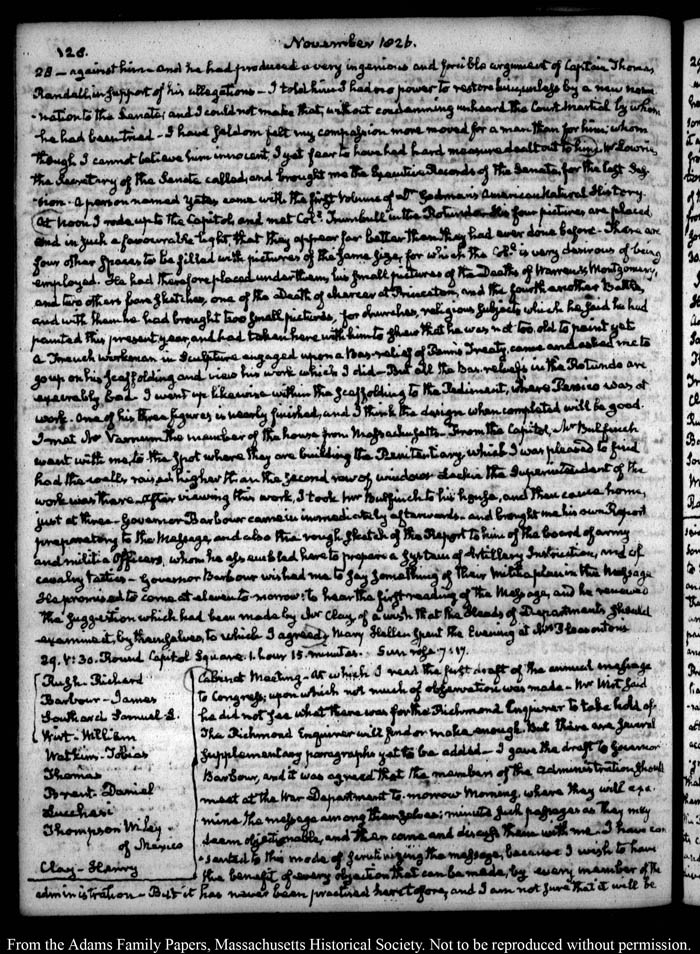 128.
November 1826.
28 — against him — and he had produced a very ingenious and forcible argument of Captain Thomas
Randall, in support of his allegations — I told him I had no power to restore him, unless by a new nomi
-nation to the Senate; and I could not make that, without condemning unheard the Court Martial by whom
he had been tried — I have seldom felt my compassion more moved for a man than for him; whom
though I cannot believe him innocent, I yet fear to have had hard measure dealt out to him. Mr Lowrie
the Secretary of the Senate called, and brought me the Executive Records of the Senate, for the last Ses-
-sion. A person named Yates came with the first Volume of Dr Godman's American Natural History
At Noon I rode up to the Capitol, and met Col. Trumbull in the Rotunda — His four pictures are placed
and in such a favourable light that they appear far better than they had ever done before — There are
four other spaces to be filled with pictures of the same size, for which the Col. is very desirous of being
employed. He had therefore placed under them, his small pictures of the Deaths of Warren, & Montgomery,
and two others fare sketches, one of the Death of Mercer at Princeton, and the fourth another Battle,
and with them he had brought two small pictures, for churches, religious subjects which he said he had
painted this present year, and had taken here with him to shew that he was not too old to paint yet
a French workman in Sculpture engaged upon a bas relief of Penn's Treaty, came and asked me to
go up on his scaffolding and view his work which I did — But all the bas reliefs in the Rotunda are
execrably bad. I went up likewise within the scaffolding to the Pediment, where Persico was at
work. One of his three figures is nearly finished, and I think the design when completed will be good.
I met Mr Varnum the member of the house from Massachusetts — From the Capitol, Mr Bulfinch
went with me, to the spot where they are building the Penitentiary which I was pleased to find
had the walls raised higher than the second row of windows the Superintendent of the
work was there. After viewing this work, I took Mr Bulfinch to his house, and then came home,
just at three. Governor Barbour came in immediately afterwards, and brought me his own Report
preparatory to the Message, and also the rough sketch of the Report to him of the board of army
and militia Officers, whom he assembled here to prepare a System of Artillery Instruction, and of
cavalry tactics — Governor Barbour wished me to say something of their militia plan in the Message
He promised to come at eleven to-morrow: to hear the first reading of the Message, and he renewed
the suggestion which had been made by Mr Clay, of a wish that the Heads of Departments should
examine it, by themselves, to which I agreed. Mary Hellen spent the Evening at Mrs
29. V: 30. Round Capitol Square. 1. hour 15. minutes. Sun rose 7: 17.
Rush. Richard
Barbour - James
Southard Samuel L.
Wirt - William
Watkins. Tobias
Thomas
Brent. Daniel
Lucchesi
Thompson Wiley -
of Mexico
Clay - Henry
Cabinet Meeting — at which I read the first draft of the annual message
to Congress; upon which not much of observation was made — Mr Wirt said
he did not see what there was for the Richmond Enquirer to take hold of.
The Richmond Enquirer will find or make enough. But there are several
supplementary paragraphs yet to be added — I gave the draft to Governor
Barbour, and it was agreed that the members of the administration should
meet at the War Department to-morrow Morning, where they will exa-
mine the message among themselves; minute such passages as they may
deem objectionable, and then come and discuss them with me. I have con
-sented to this mode of scrutinizing the message, because I wish to have
the benefit of every objection that can be made, by every member of the
administration — But it has never been practised heretofore, and I am not sure that it will be
From the Adams Family Papers, Massachusetts Historical Society. Not to be reproduced without permission.